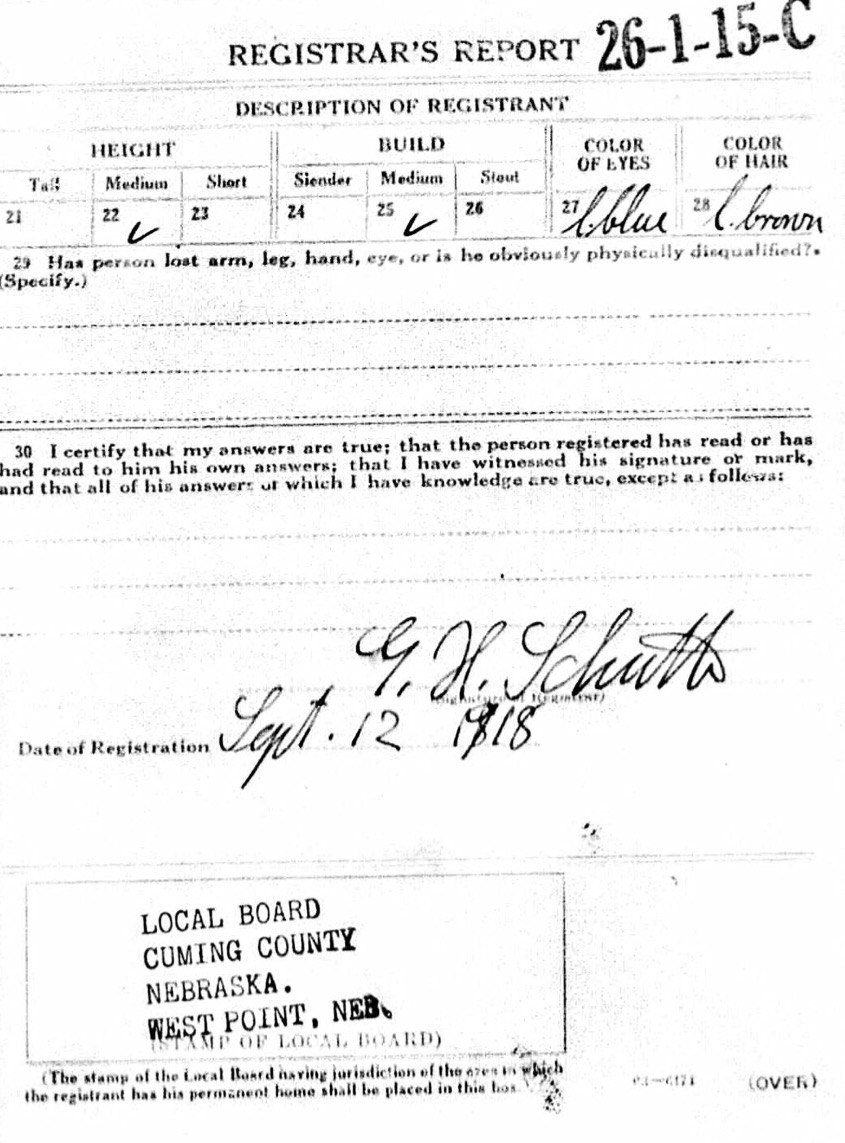 REGISTRAR'S REPORT 26-1-15-C
DESCRIPTION OF REGISTRANT
HEIGHT BUILD COLOR OF EYES COLOR OF HAIR
Tall Medium Short Slender Medium Stout
21 22 ✓ 23 24 25 ✓ 26 27 l. blue 28 l. brown
29 Has person lost arm, leg, hand, eye, or is he obviously physically disqualified?
(Specify.)
30 I certify that my answers are true; that the person registered has read or has
had read to him his own answers; that I have witnessed his signature or mark,
and that all of his answers of which I have knowledge are true, except as follows:
G. H. Schutth
(Signature of Registrar)
Date of Registration Sept. 12 1918
LOCAL BOARD
CUMING COUNTY
NEBRASKA.
WEST POINT, NEB.
(STAMP OF LOCAL BOARD)
(The stamp of the Local Board having jurisdiction of the area in which
the registrant has his permanent home shall be placed in this box.)
(OVER)